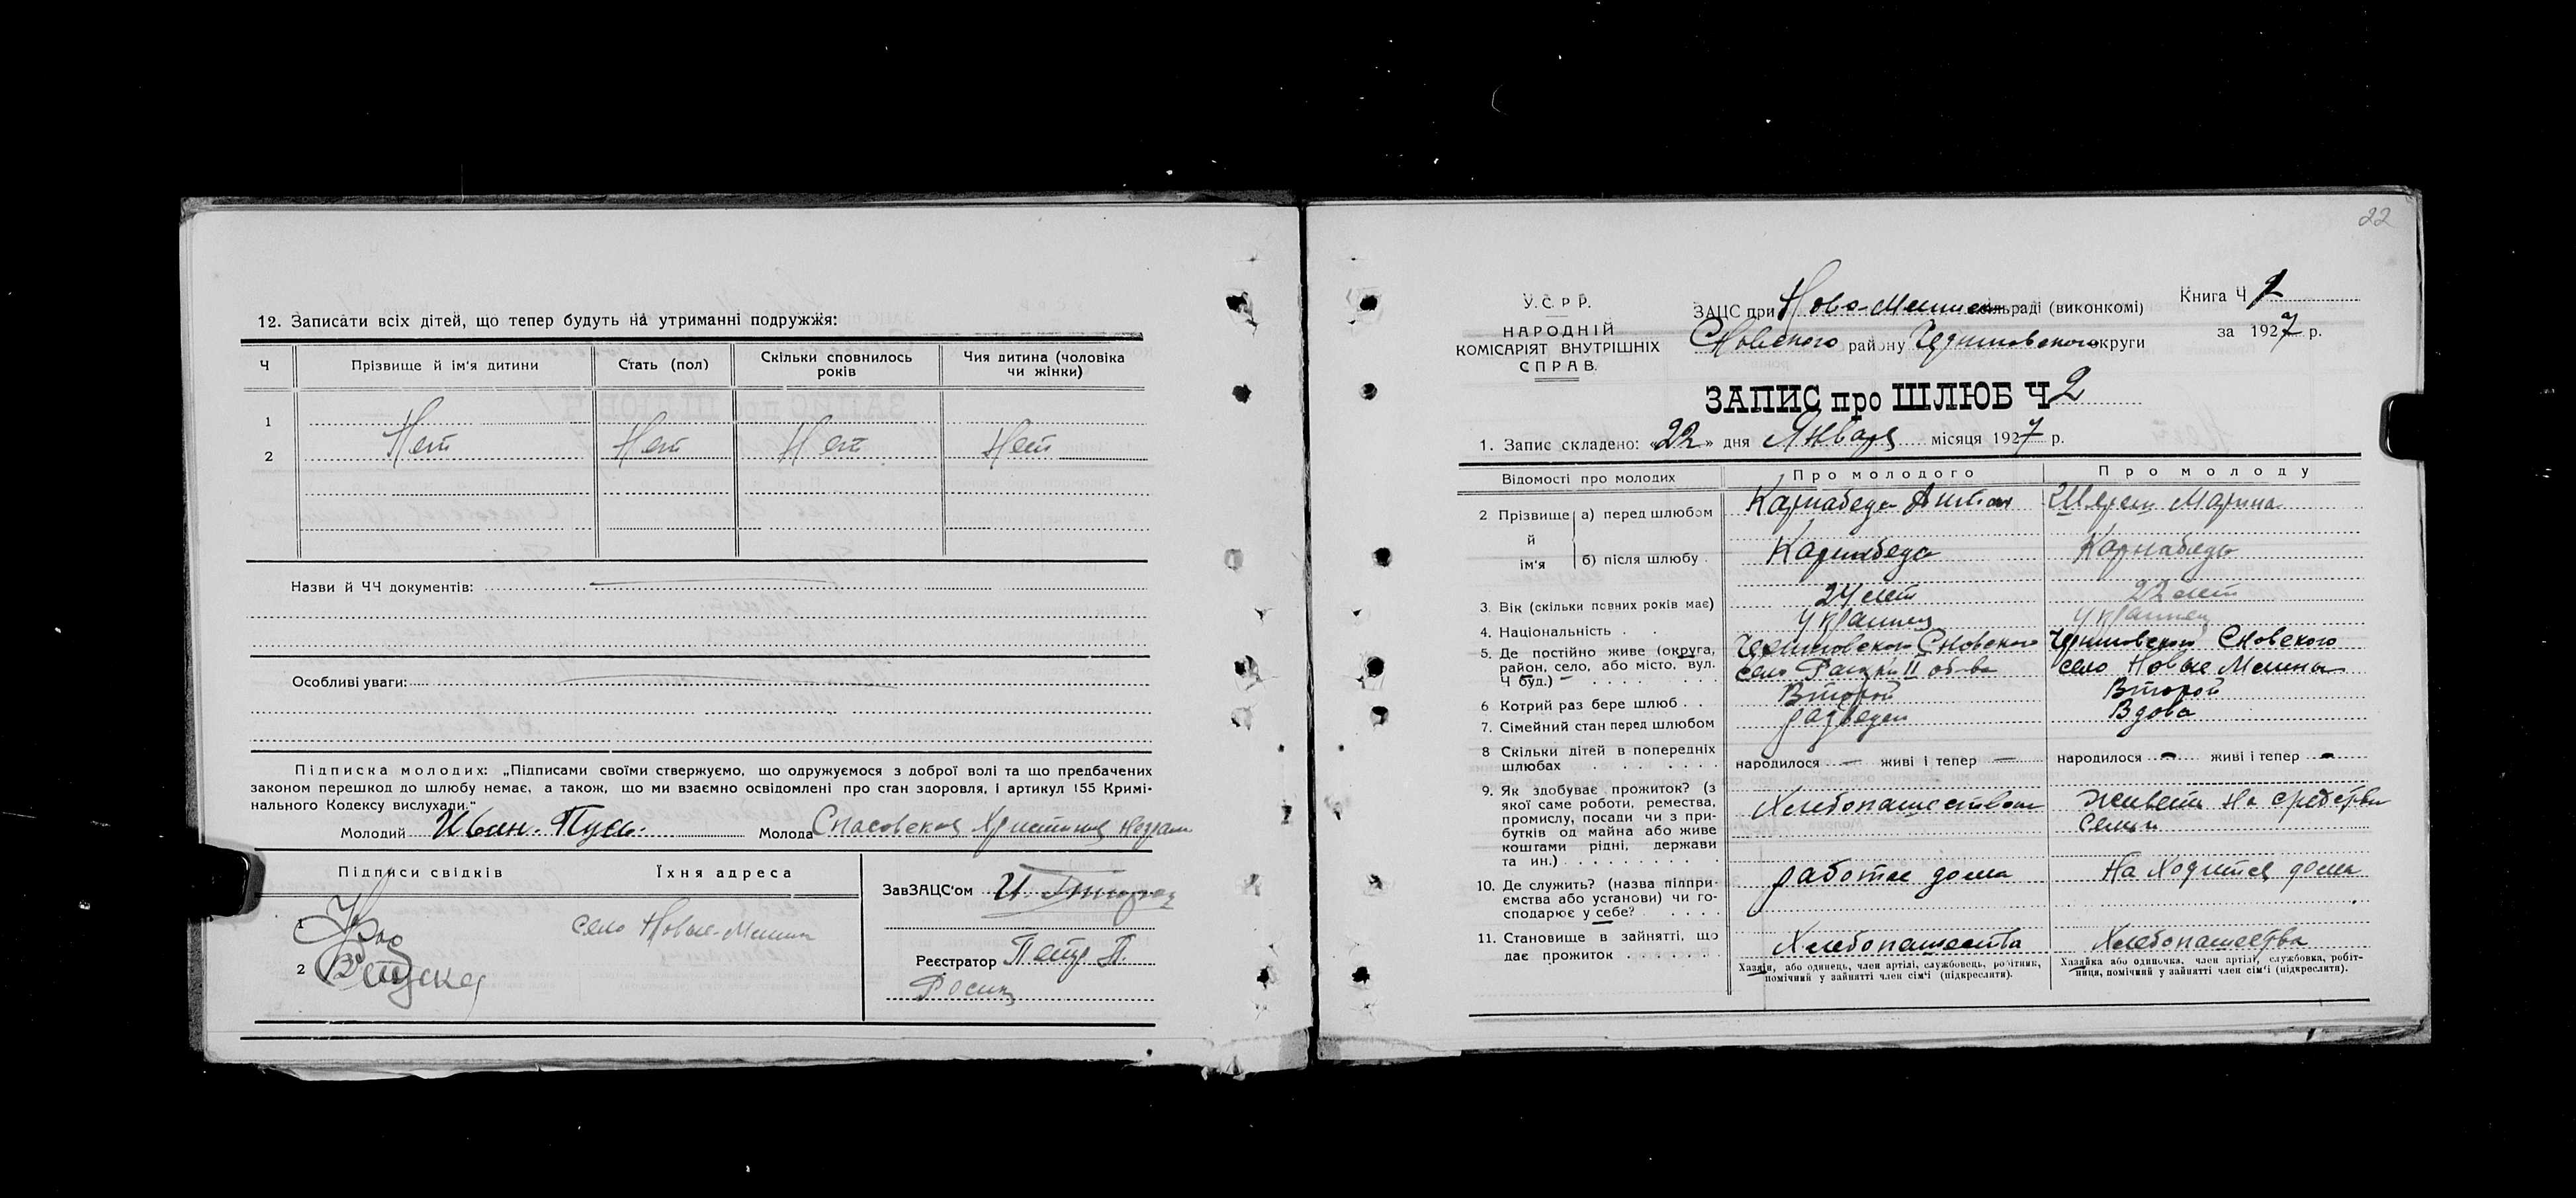 12. Записати всіх дітей, що тепер будуть на утриманні подружжя:
Ч Прізвище й ім'я дитини Стать (пол) Скільки сповнилось років Чия дитина (чоловіка чи жінки)
1
2 Нет Нет Нет Нет
Назви й ЧЧ документів:
Особливі уваги:
Підписка молодих: „Підписами своїми стверджуємо, що одружуємося з доброї волі та що предбачених
законом перешкод до шлюбу немає, а також, що ми взаємно освідомлені про стан здоровля, і артикул 155 Кримі-
нального Кодексу вислухали."
Молодий Иван Молода
Підписи свідків Їхня адреса
ЗавЗАЦС'ом И.
1 село Новые-Млины
2
Реєстратор Петр П.
22
У.С.Р.Р.
НАРОДНІЙ
КОМІСАРІЯТ ВНУТРІШНІХ
СПРАВ.
ЗАЦС при Ново-Млинск сільраді (виконкомі)
Сновского району Черниговского округи
Книга Ч 2
за 1927 р.
ЗАПИС про ШЛЮБ Ч 2
1. Запис складено: «22» дня Января місяця 1927 р.
Відомості про молодих Про молодого Про молоду
2 Прізвище й ім'я а) перед шлюбом Карнабеда Антон Марина
б) після шлюбу Карнабеда Карнабеда
3. Вік (скільки повних років має) 24 лет 22 лет
4. Національність Украинец Украинец
5. Де постійно живе (округа, район, село, або місто, вул. Ч буд.) Черниговской Сновского Черниговской Сновского
село II село Новые Млины
6 Котрий раз бере шлюб Второй Второй
7. Сімейний стан перед шлюбом разведен Вдова
8 Скільки дітей в попередніх шлюбах народилося — живі і тепер — народилося - живі і тепер -
9. Як здобуває прожиток? (з
якої саме роботи, ремества,
промислу, посади чи з при-
бутків од майна або живе
коштами рідні, держави
та ин.)
Хлебопашеством живет на средства
семьи
10. Де служить? (назва підпри-
ємства або установи) чи го-
сподарює у себе?
работае дома На ходится дома
11. Становище в зайнятті, що
дає прожиток
Хлебопашества Хлебопашества
Хазяїн, або одинець, член артілі, службовець, робітник,
помічний у зайнятті член сім'ї (підкреслити).
Хазяйка або одиночка, член артілі, службовка, робіт-
ниця, помічний у зайнятті член сім'ї (підкреслити).